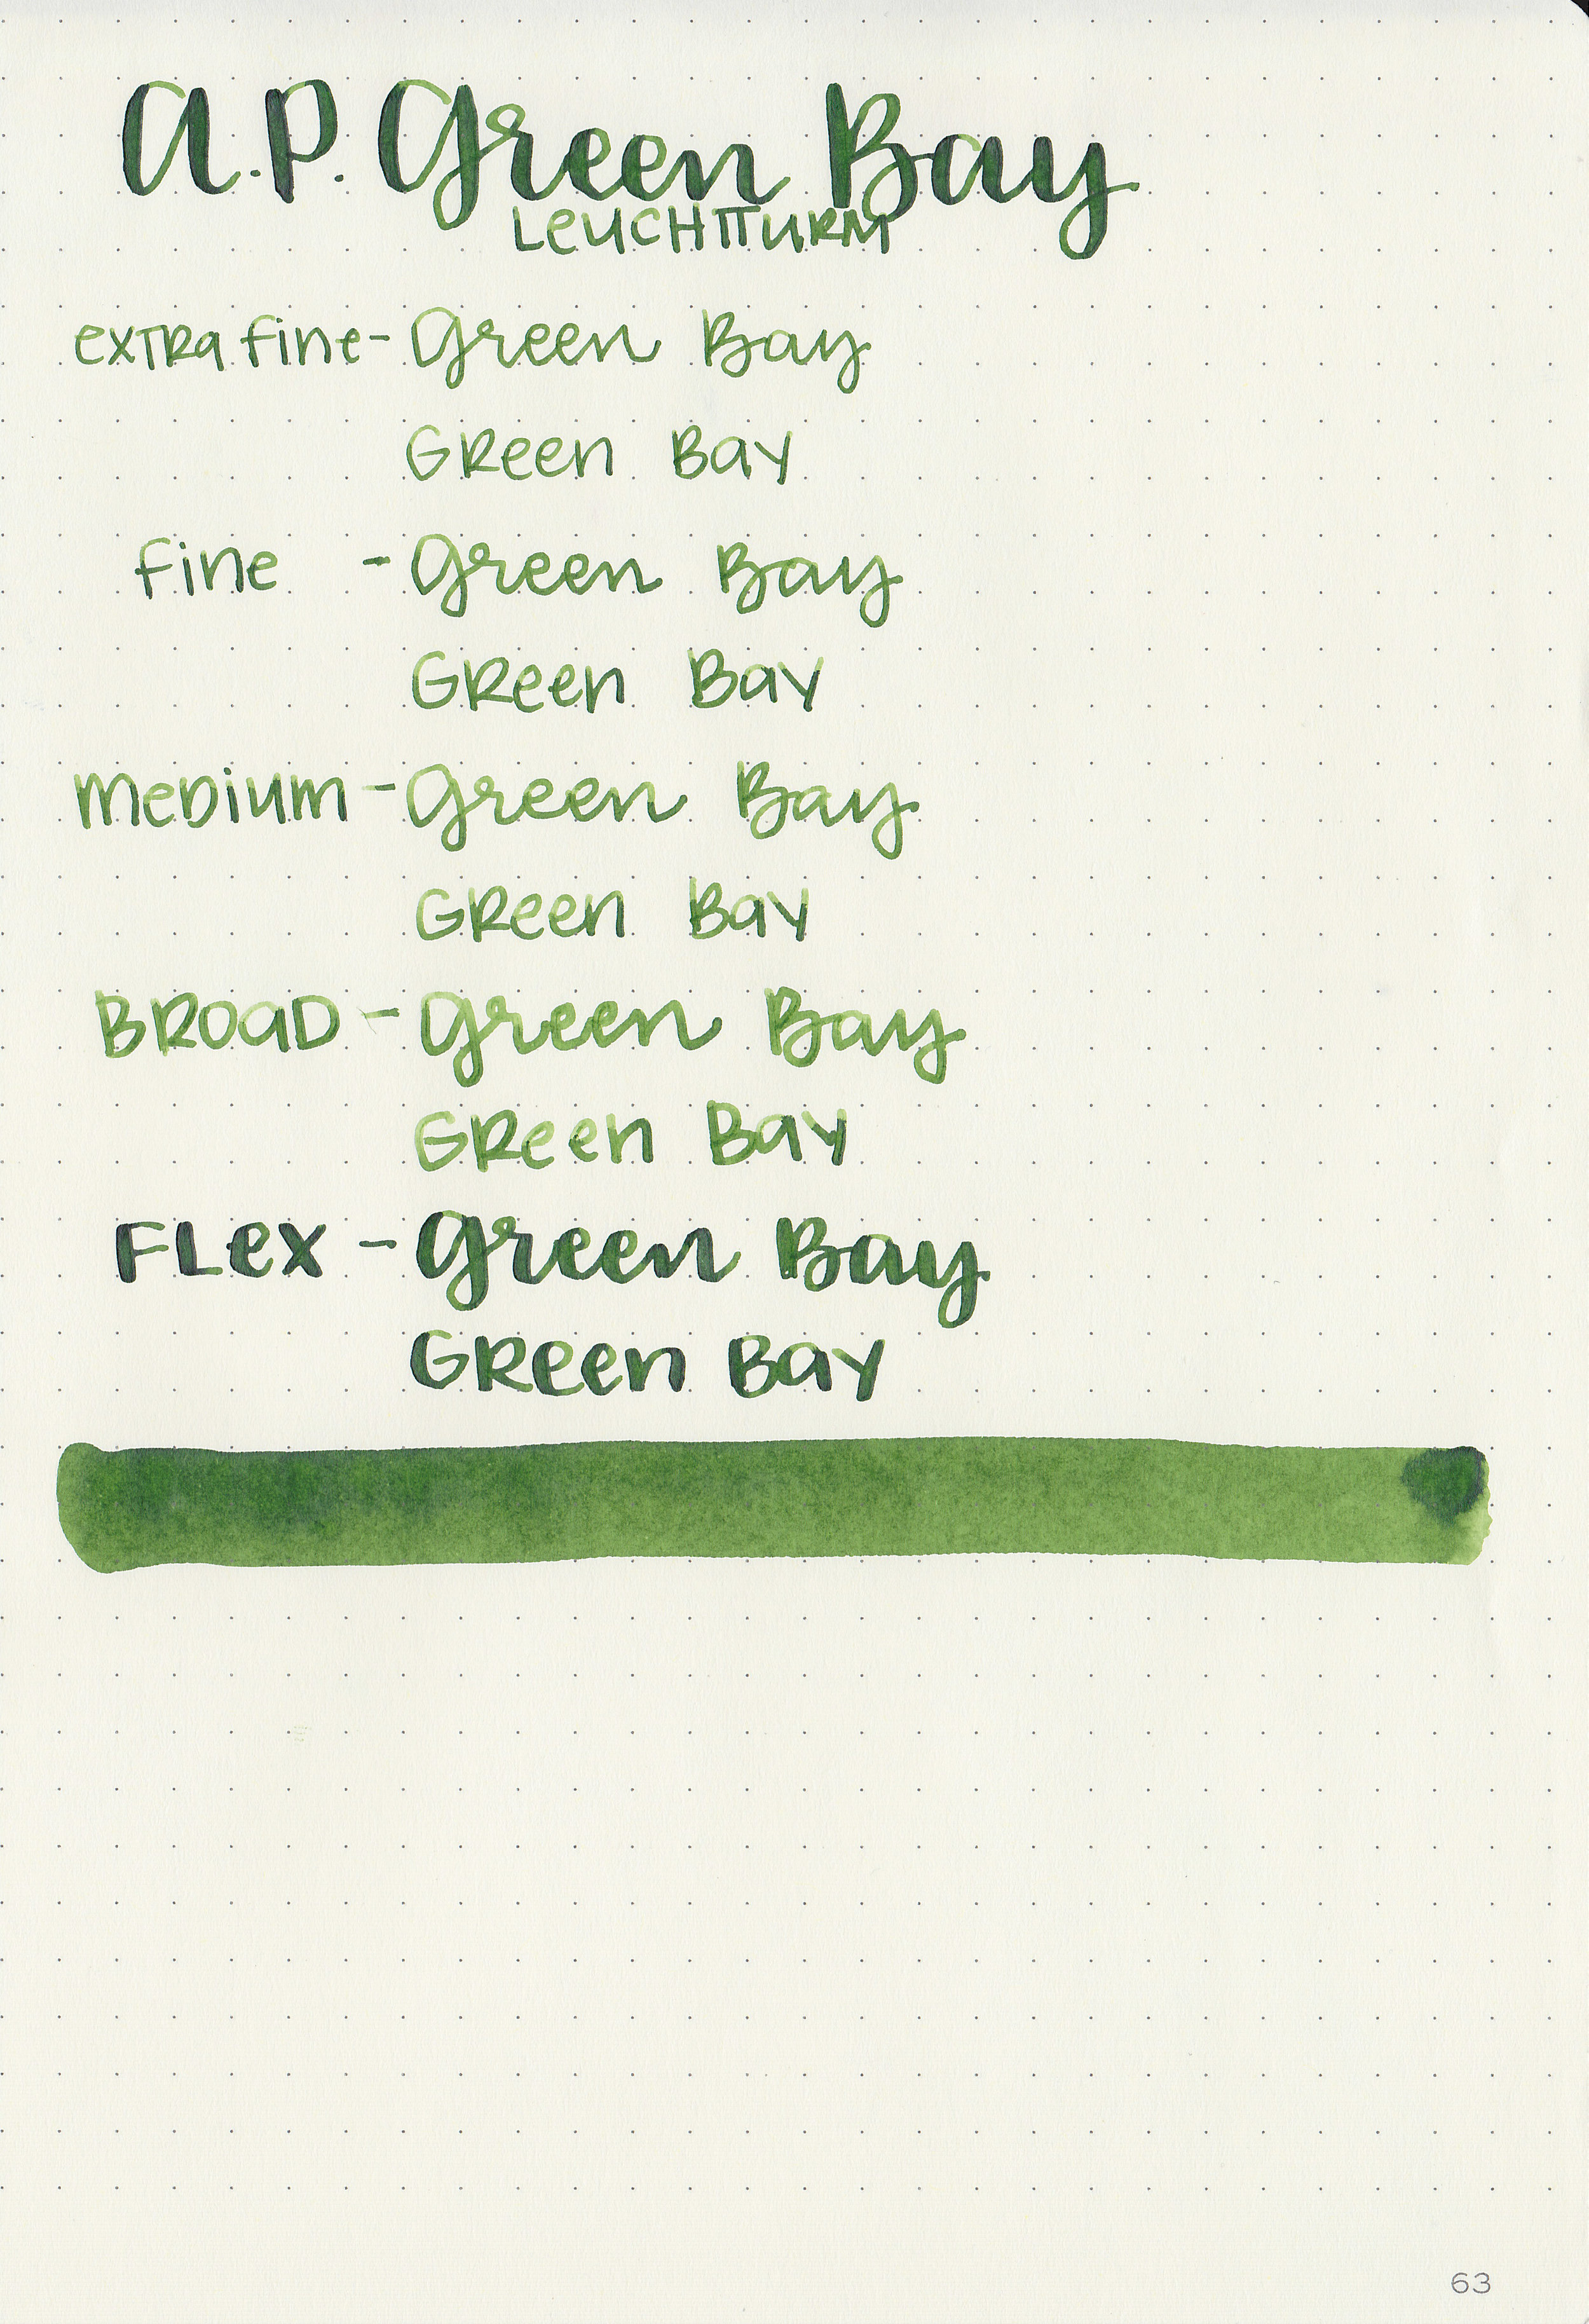 a.P. Green Bay
LeUCHTTURM
exTRa fine - Green Bay
GReen Bay
fine - Green Bay
GReen Bay
MeDium - Green Bay
GReen Bay
BROaD - Green Bay
GReen Bay
FLex - Green Bay
GReen Bay
63